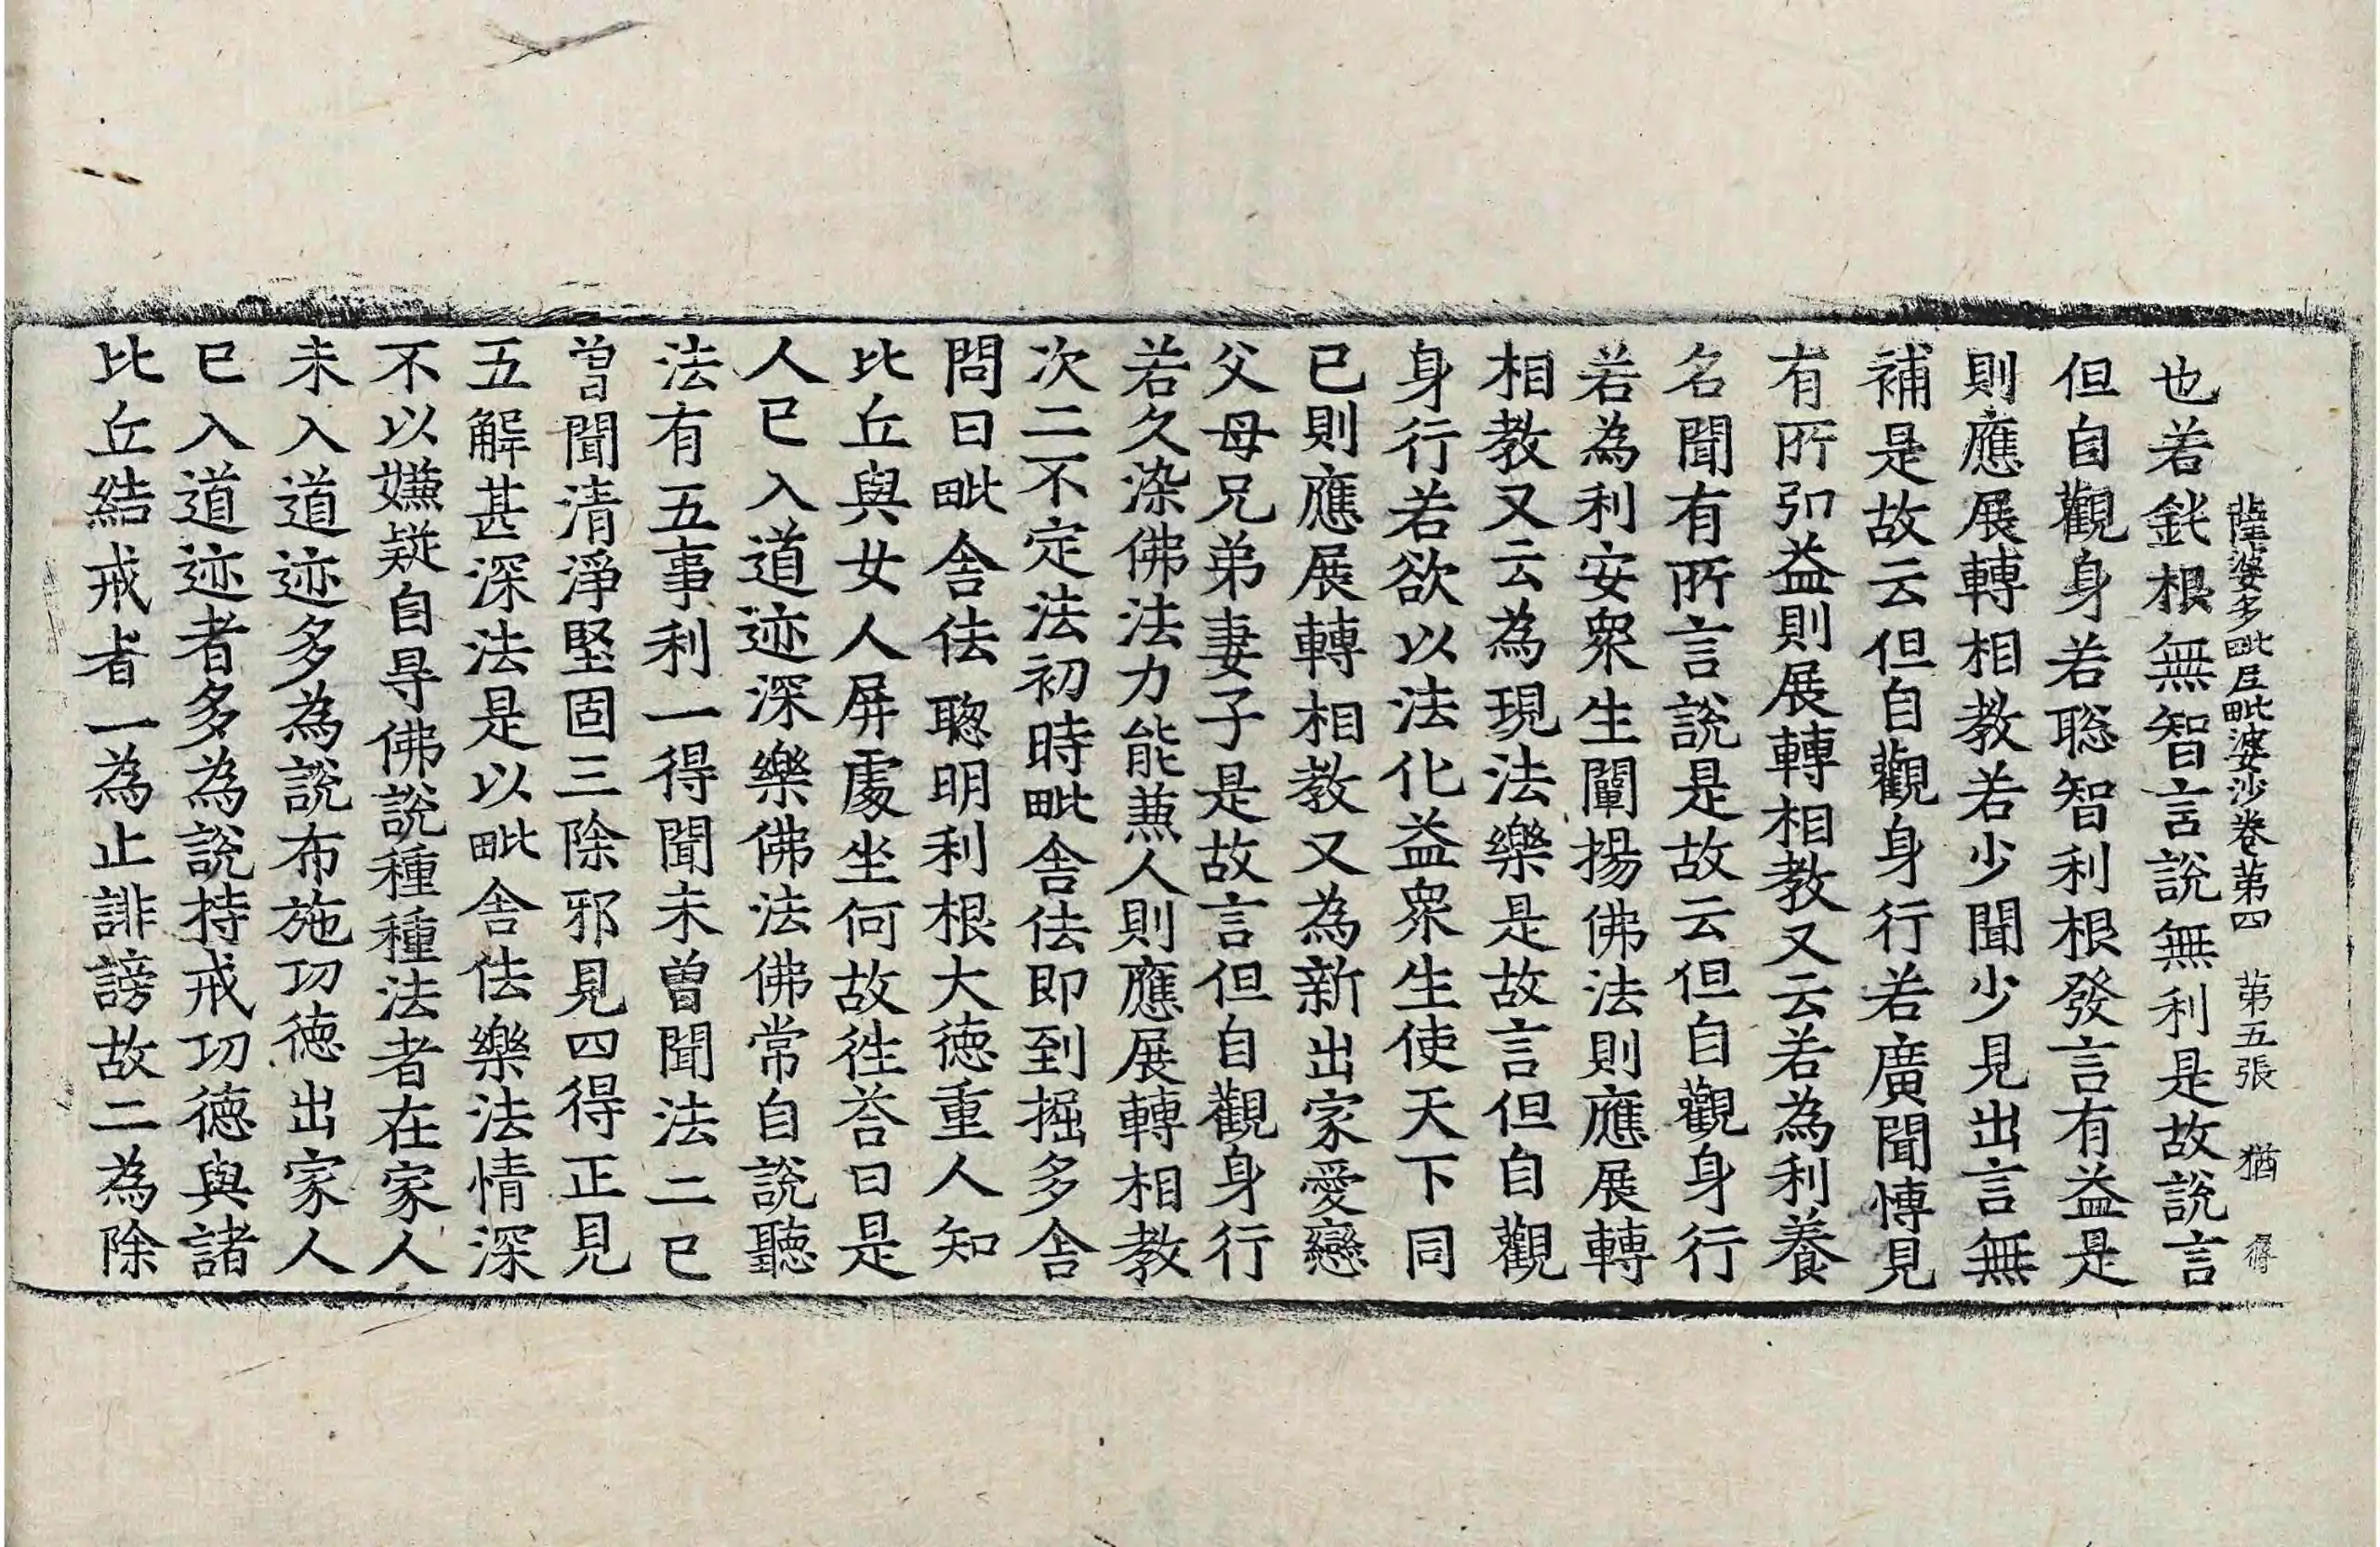 薩婆多毗尼毗婆沙卷第四 第五張 猶
也若鈍根無智言說無利是故說言
但自觀身若聡智利根發言有益是
則應展轉相教若少聞少見出言無
補是故云但自觀身行若廣聞愽見
有所引益則展轉相教又云若為利養
名聞有所言說是故云但自觀身行
若為利安衆生闡揚佛法則應展轉
相教又云為現法樂是故言但自觀
身行若欲以法化益衆生使天下同
已則應展轉相教又為新出家愛戀
父母兄弟妻子是故言但自觀身行
若久染佛法力能兼人則應展轉相教
次二不定法初時毗舍佉即到掘多舍
問曰毗舍佉聦明利根大徳重人知
比丘與女人屏處坐何故徃荅曰是
人已入道迹深樂佛法佛常自說聽
法有五事利一得聞未曽聞法二已
曽聞清淨堅固三除邪見四得正見
五解甚深法是以毗舍佉樂法情深
不以嫌疑自㝵佛說種種法者在家人
未入道迹多為說布施功徳出家人
已入道迹者多為說持戒功徳與諸
比丘結戒者一為止誹謗故二為除